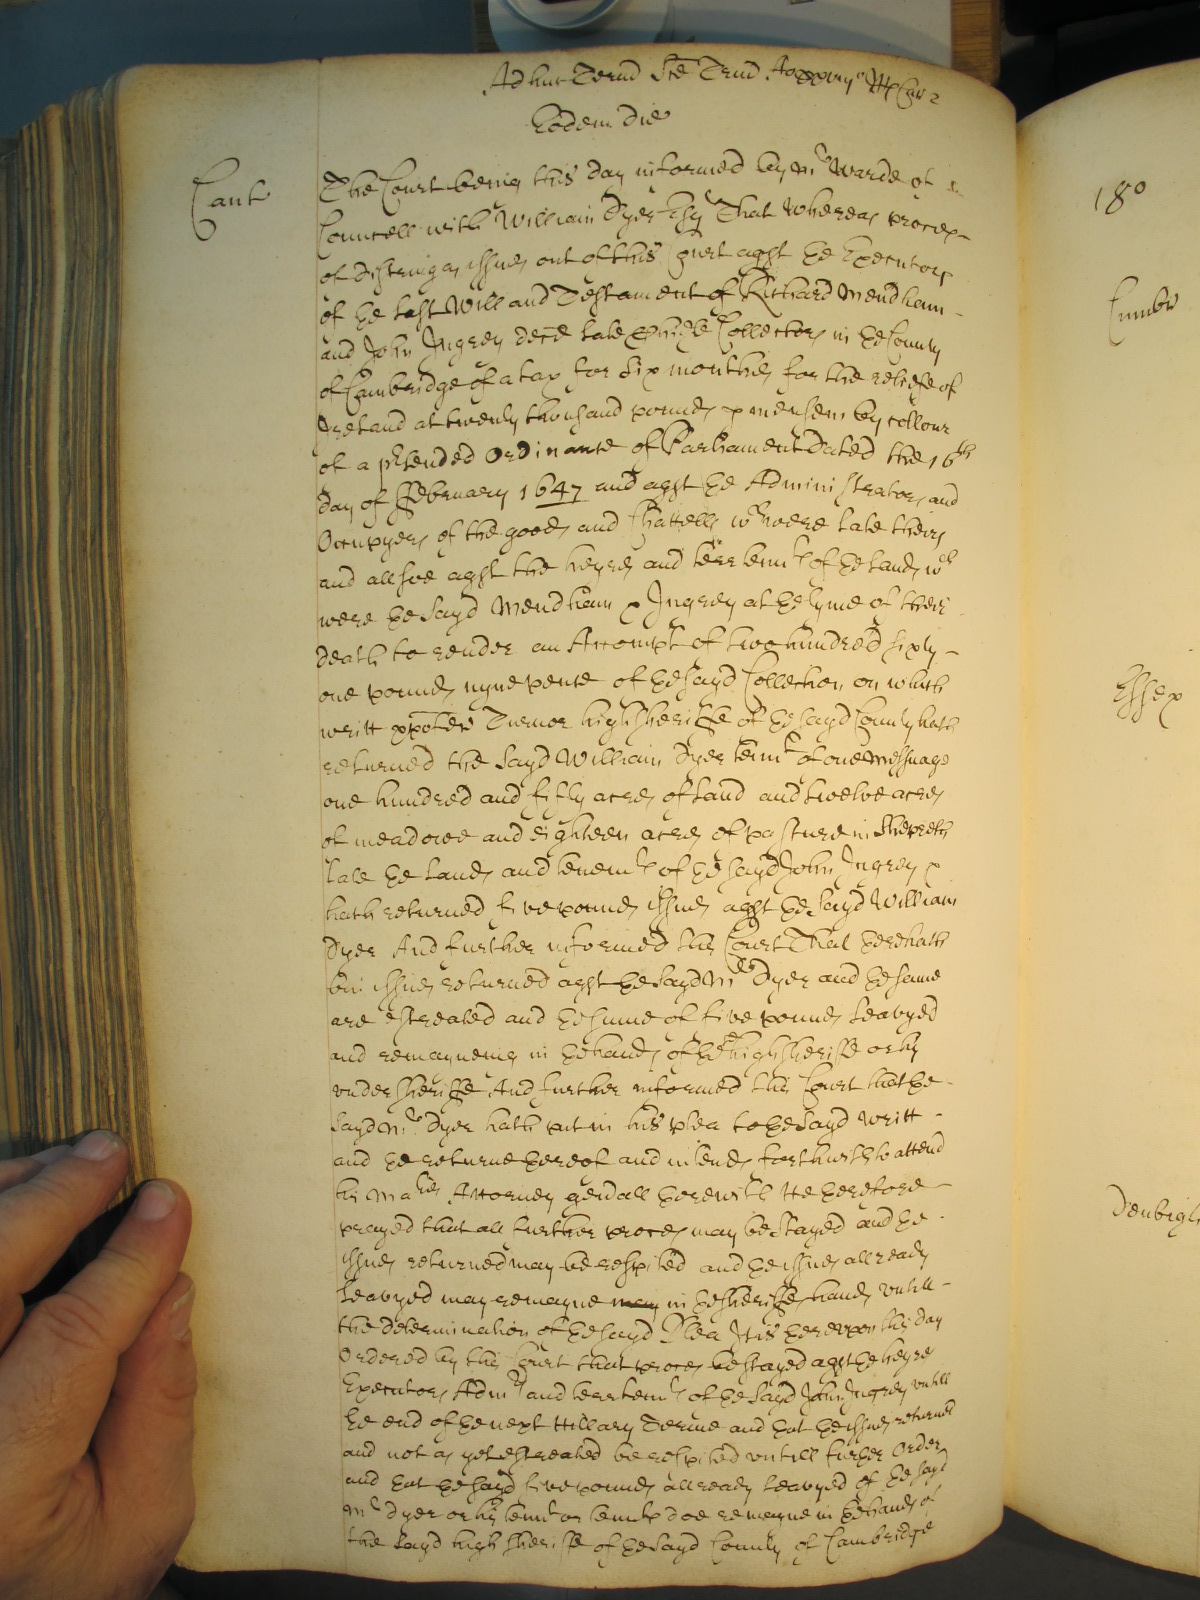 Adhuc Termino Ste Trin Anno xiiijo Rs Car 2
Eodem Die
Cant
The Court being this day informed by Mr Warde of
Councell with William Dyer Esqr That whereas proces
of distringas issued out of this Court agst ye Executors
of ye last Will and Testament of Richard Mendham
and John Ingrey decd late Collectors in ye County
of Cambridge of a tax for six monthes for the reliefe of
Ireland at twenty thousand pounds p mensem by collour
of a prtended Ordinance of Parliament Dated the 16th
day of ffebruary 1647 and agst ye Administrators and
Occupyers of the goods and Chattells wch were late theirs
and allsoe agst the heyres and terr tennts of ye lands wch
were ye sayd Mendham & Ingrey at ye tyme of their
death to render an Accompt of two hundred sixty
one pounds nyne pence of ye sayd Collection on which
writt Turnor high Sheriffe of ye sayd County hath
returned the sayd William Dyer tennt of one messuage
one hundred and fifty acres of land and twelve acres
of meadowe and eighteen acres of pasture in Shepreth
late ye lands and tenemts of ye sayd John Ingrey &
hath returned five pounds issues agst ye sayd William
Dyer And further informed this Court That there hath
bin issues returned agst ye sayd Mr Dyer and ye same
are estreated and ye sume of five pounds leavyed
and remayneing in ye hands of ye high Sheriffe or his
under Sheriffe And further informed this Court that ye
sayd Mr Dyer hath put in his plea to ye sayd writt
and ye returne thereof and intends forthwith to attend
his Maties Attorney generall therewith He therefore
prayed that all further proces may be stayed and ye
issues returned may be respited and ye issues allready
leavyed may remayne may in ye Sheriffes hands untill
the determination of ye sayd Plea It is thereupon this day
Ordered by this Court that proces be stayed agst ye heyres
Executors Admrs and terr tennts of ye sayd John Ingrey untill
ye end of ye next Hillary Terme and that ye issues returned
and not as yet estreated be respited untill further Order
and that ye sayd five pounds allready leavyed of ye sayd
Mr Dyer or his tennt or tennts doe remayne in ye hands of
the sayd high Sheriffe of ye sayd County of Cambridge
18o
Cumbr
Essex
Denbigh